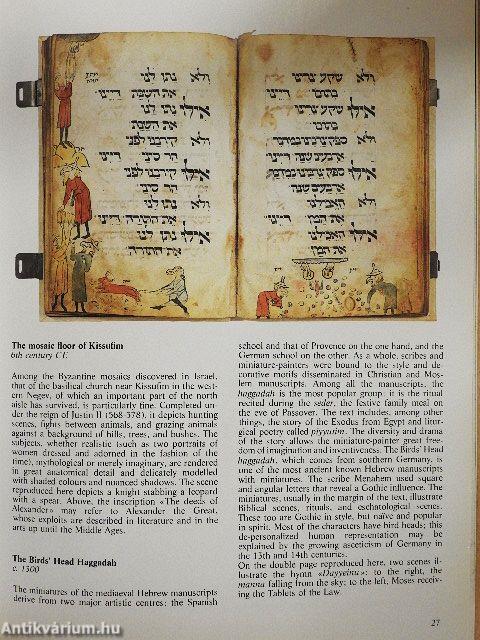 ולא שקע צרינו
בתוכו דיינו
אלו שקע צרינו
בתוכו
ולא ספק צרכינו במדבר
ארבעים שנה דיינו
אלו ספק צרכינו במדבר
ארבעים שנה
ולא האכילנו
את המן דיינו
אלו האכילנו
את המן
ולא נתן לנו
את השבת דיינו
אלו נתן לנו
את השבת
ולא קירבנו לפני
הר סיני דיינו
אלו קירבנו לפני
הר סיני
ולא נתן לנו
את התורה דיינו
אלו נתן לנו
את התורה
The mosaic floor of Kissufim
6th century C.E.
Among the Byzantine mosaics discovered in Israel,
that of the basilical church near Kissufim in the west-
ern Negev, of which an important part of the north
aisle has survived, is particularly fine. Completed un-
der the reign of Justin II (568-578), it depicts hunting
scenes, fights between animals, and grazing animals
against a background of hills, trees, and bushes. The
subjects, whether realistic (such as two portraits of
women dressed and adorned in the fashion of the
time), mythological or merely imaginary, are rendered
in great anatomical detail and delicately modelled
with shaded colours and nuanced shadows. The scene
reproduced here depicts a knight stabbing a leopard
with a spear. Above, the inscription «The deeds of
Alexander» may refer to Alexander the Great,
whose exploits are described in literature and in the
arts up until the Middle Ages.
The Birds' Head Haggadah
c. 1300
The miniatures of the mediaeval Hebrew manuscripts
derive from two major artistic centres: the Spanish
school and that of Provence on the one hand, and the
German school on the other. As a whole, scribes and
miniature-painters were bound to the style and de-
corative motifs disseminated in Christian and Mos-
lem manuscripts. Among all the manuscripts, the
haggadah is the most popular group: it is the ritual
recited during the seder, the festive family meal on
the eve of Passover. The text includes, among other
things, the story of the Exodus from Egypt and litur-
gical poetry called piyyutim. The diversity and drama
of the story allows the miniature-painter great free-
dom of imagination and inventiveness. The Birds' Head
haggadah, which comes from southern Germany, is
one of the most ancient known Hebrew manuscripts
with miniatures. The scribe Menahem used square
and angular letters that reveal a Gothic influence. The
miniatures, usually in the margin of the text, illustrate
Biblical scenes, rituals, and eschatological scenes.
These too are Gothic in style, but naïve and popular
in spirit. Most of the characters have bird heads; this
de-personalized human representation may be
explained by the growing asceticism of Germany in
the 13th and 14th centuries.
On the double page reproduced here, two scenes il-
lustrate the hymn «Dayyeinu»: to the right, the
manna falling from the sky; to the left, Moses receiv-
ing the Tablets of the Law.
27
Antikvárium.hu